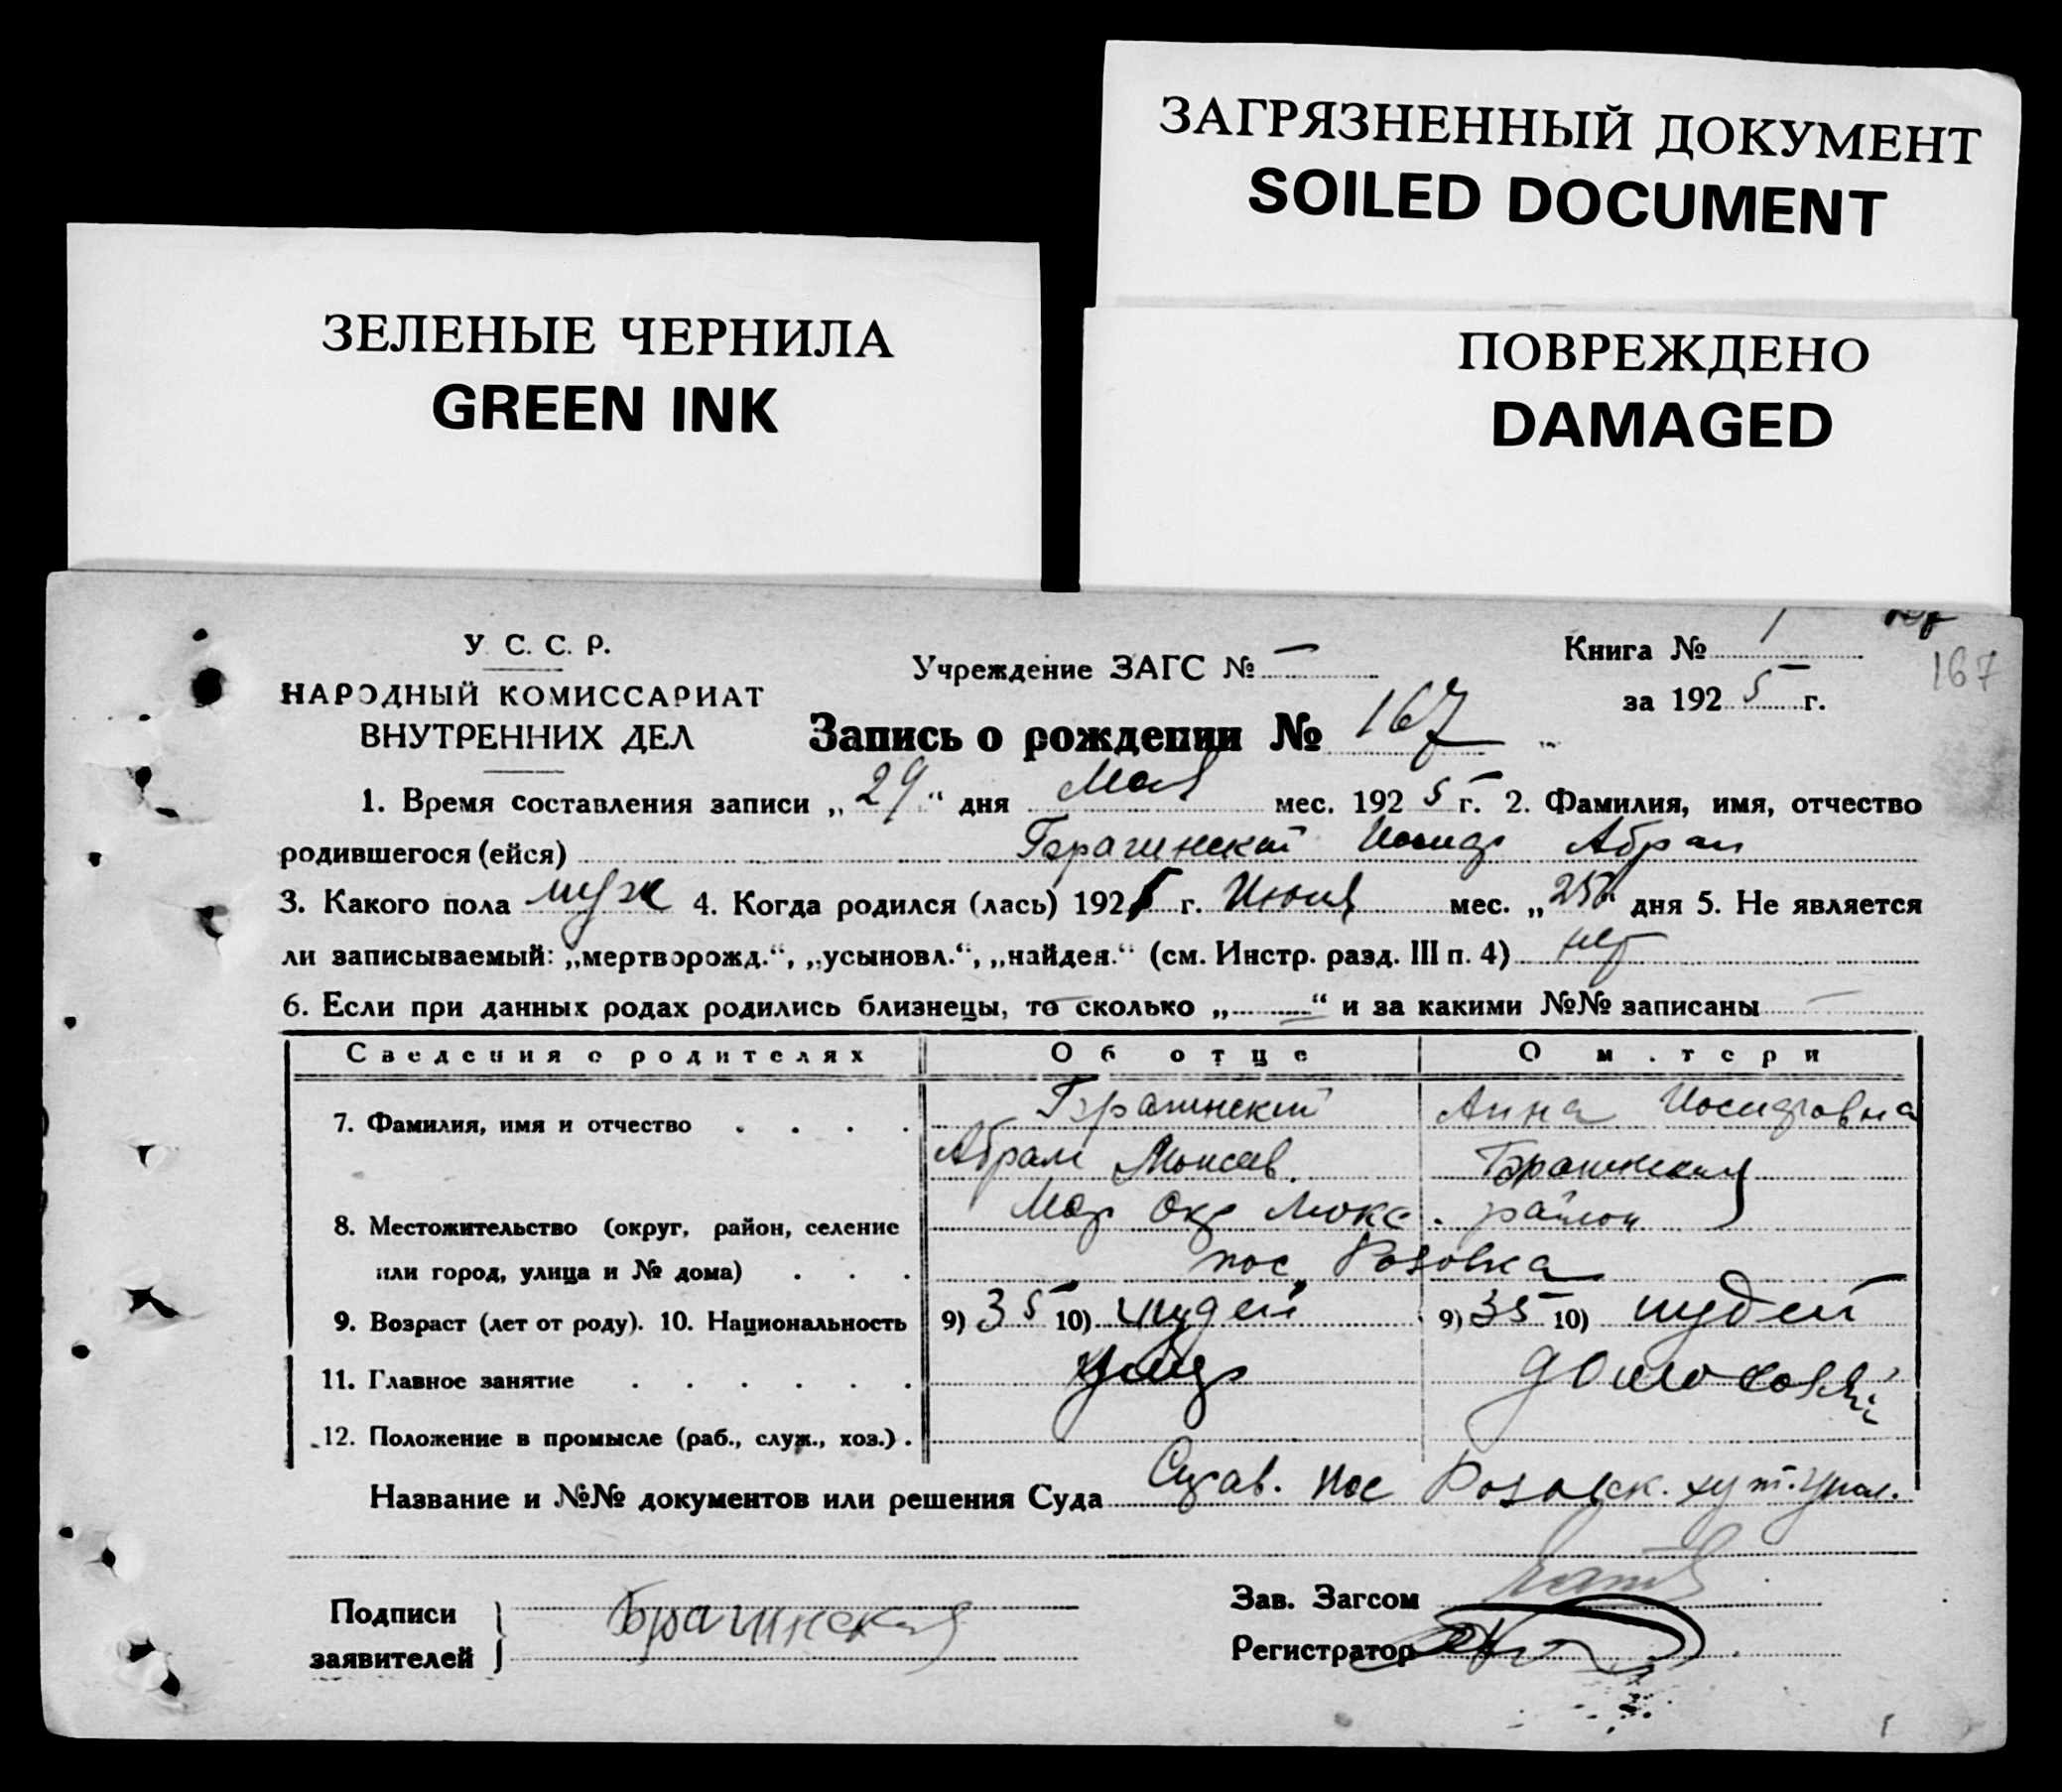 ЗАГРЯЗНЕННЫЙ ДОКУМЕНТ
SOILED DOCUMENT
ЗЕЛЕНЫЕ ЧЕРНИЛА
GREEN INK
ПОВРЕЖДЕНО
DAMAGED
У. С. С. Р.
НАРОДНЫЙ КОМИССАРИАТ
ВНУТРЕННИХ ДЕЛ
Учреждение ЗАГС № —
Книга № 1
167
за 1925 г.
Запись о рождении № 167
1. Время составления записи „29“ дня Мая мес. 1925 г. 2. Фамилия, имя, отчество
родившегося (ейся) Брагинский Абрам
3. Какого пола муж 4. Когда родился (лась) 192 г. Июня мес. „25“ дня 5. Не является
ли записываемый: „мертворожд.“, „усыновл.“, „найден.“ (см. Инстр. разд. III п. 4) нет
6. Если при данных родах родились близнецы, то сколько „—“ и за какими №№ записаны —
Сведения о родителях Об отце О матери
7. Фамилия, имя и отчество . . . . Брагинский Анна
Абрам Моисеев. Брагинская
8. Местожительство (округ, район, селение Мар Окр Люкс. район
или город, улица и № дома) . . . пос. Розовка
9. Возраст (лет от роду). 10. Национальность 9) 35 10) иудей 9) 35 10) иудей
11. Главное занятие . . . . . .
12. Положение в промысле (раб., служ., хоз.) .
Название и №№ документов или решения Суда пос Розовск.
Подписи
заявителей } Брагинская
Зав. Загсом
Регистратор